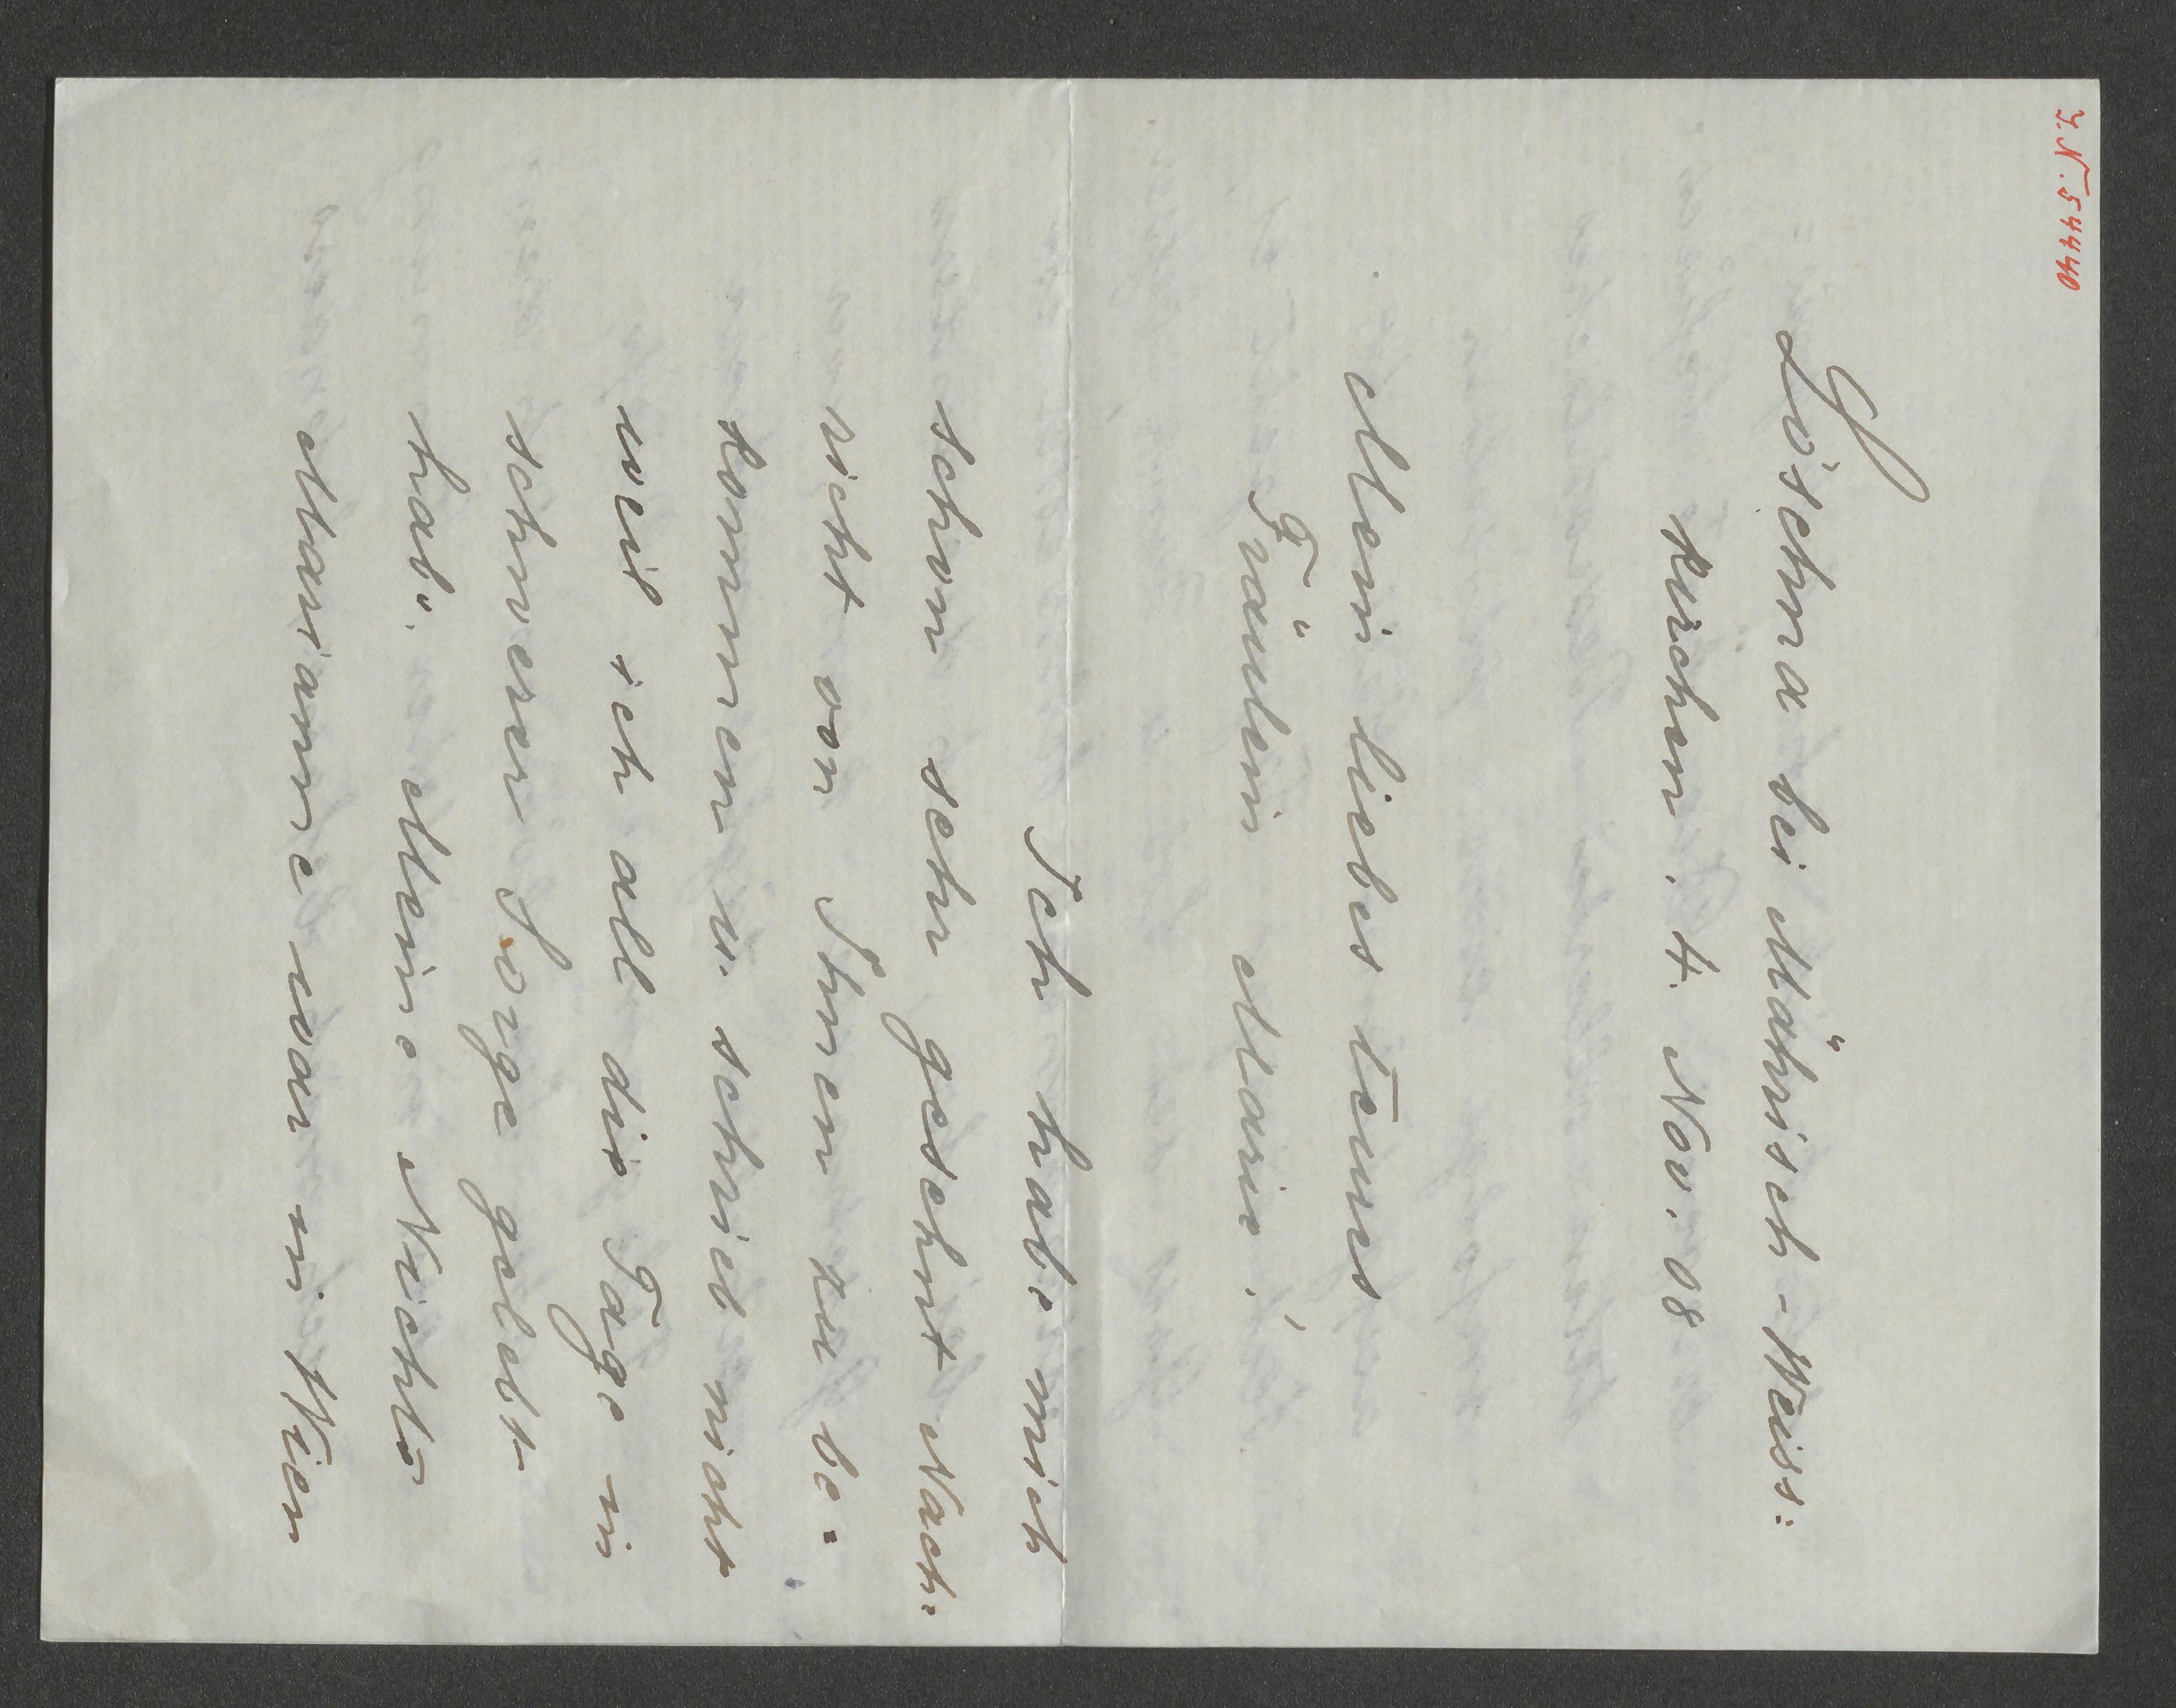 I.N. 54440
Löschna bei Mährisch-Weiss:
kirchen. 4. Nov. 08
Mein liebes teures
Fräulein Marie!
Ich habe mich
schon sehr gesehnt Nach:
richt von Ihnen zu be:
kommen u. schrieb nicht
weil ich all die Tage in
schwerer Sorge gelebt
habe. Meine Nichte
Marianne war in Wien